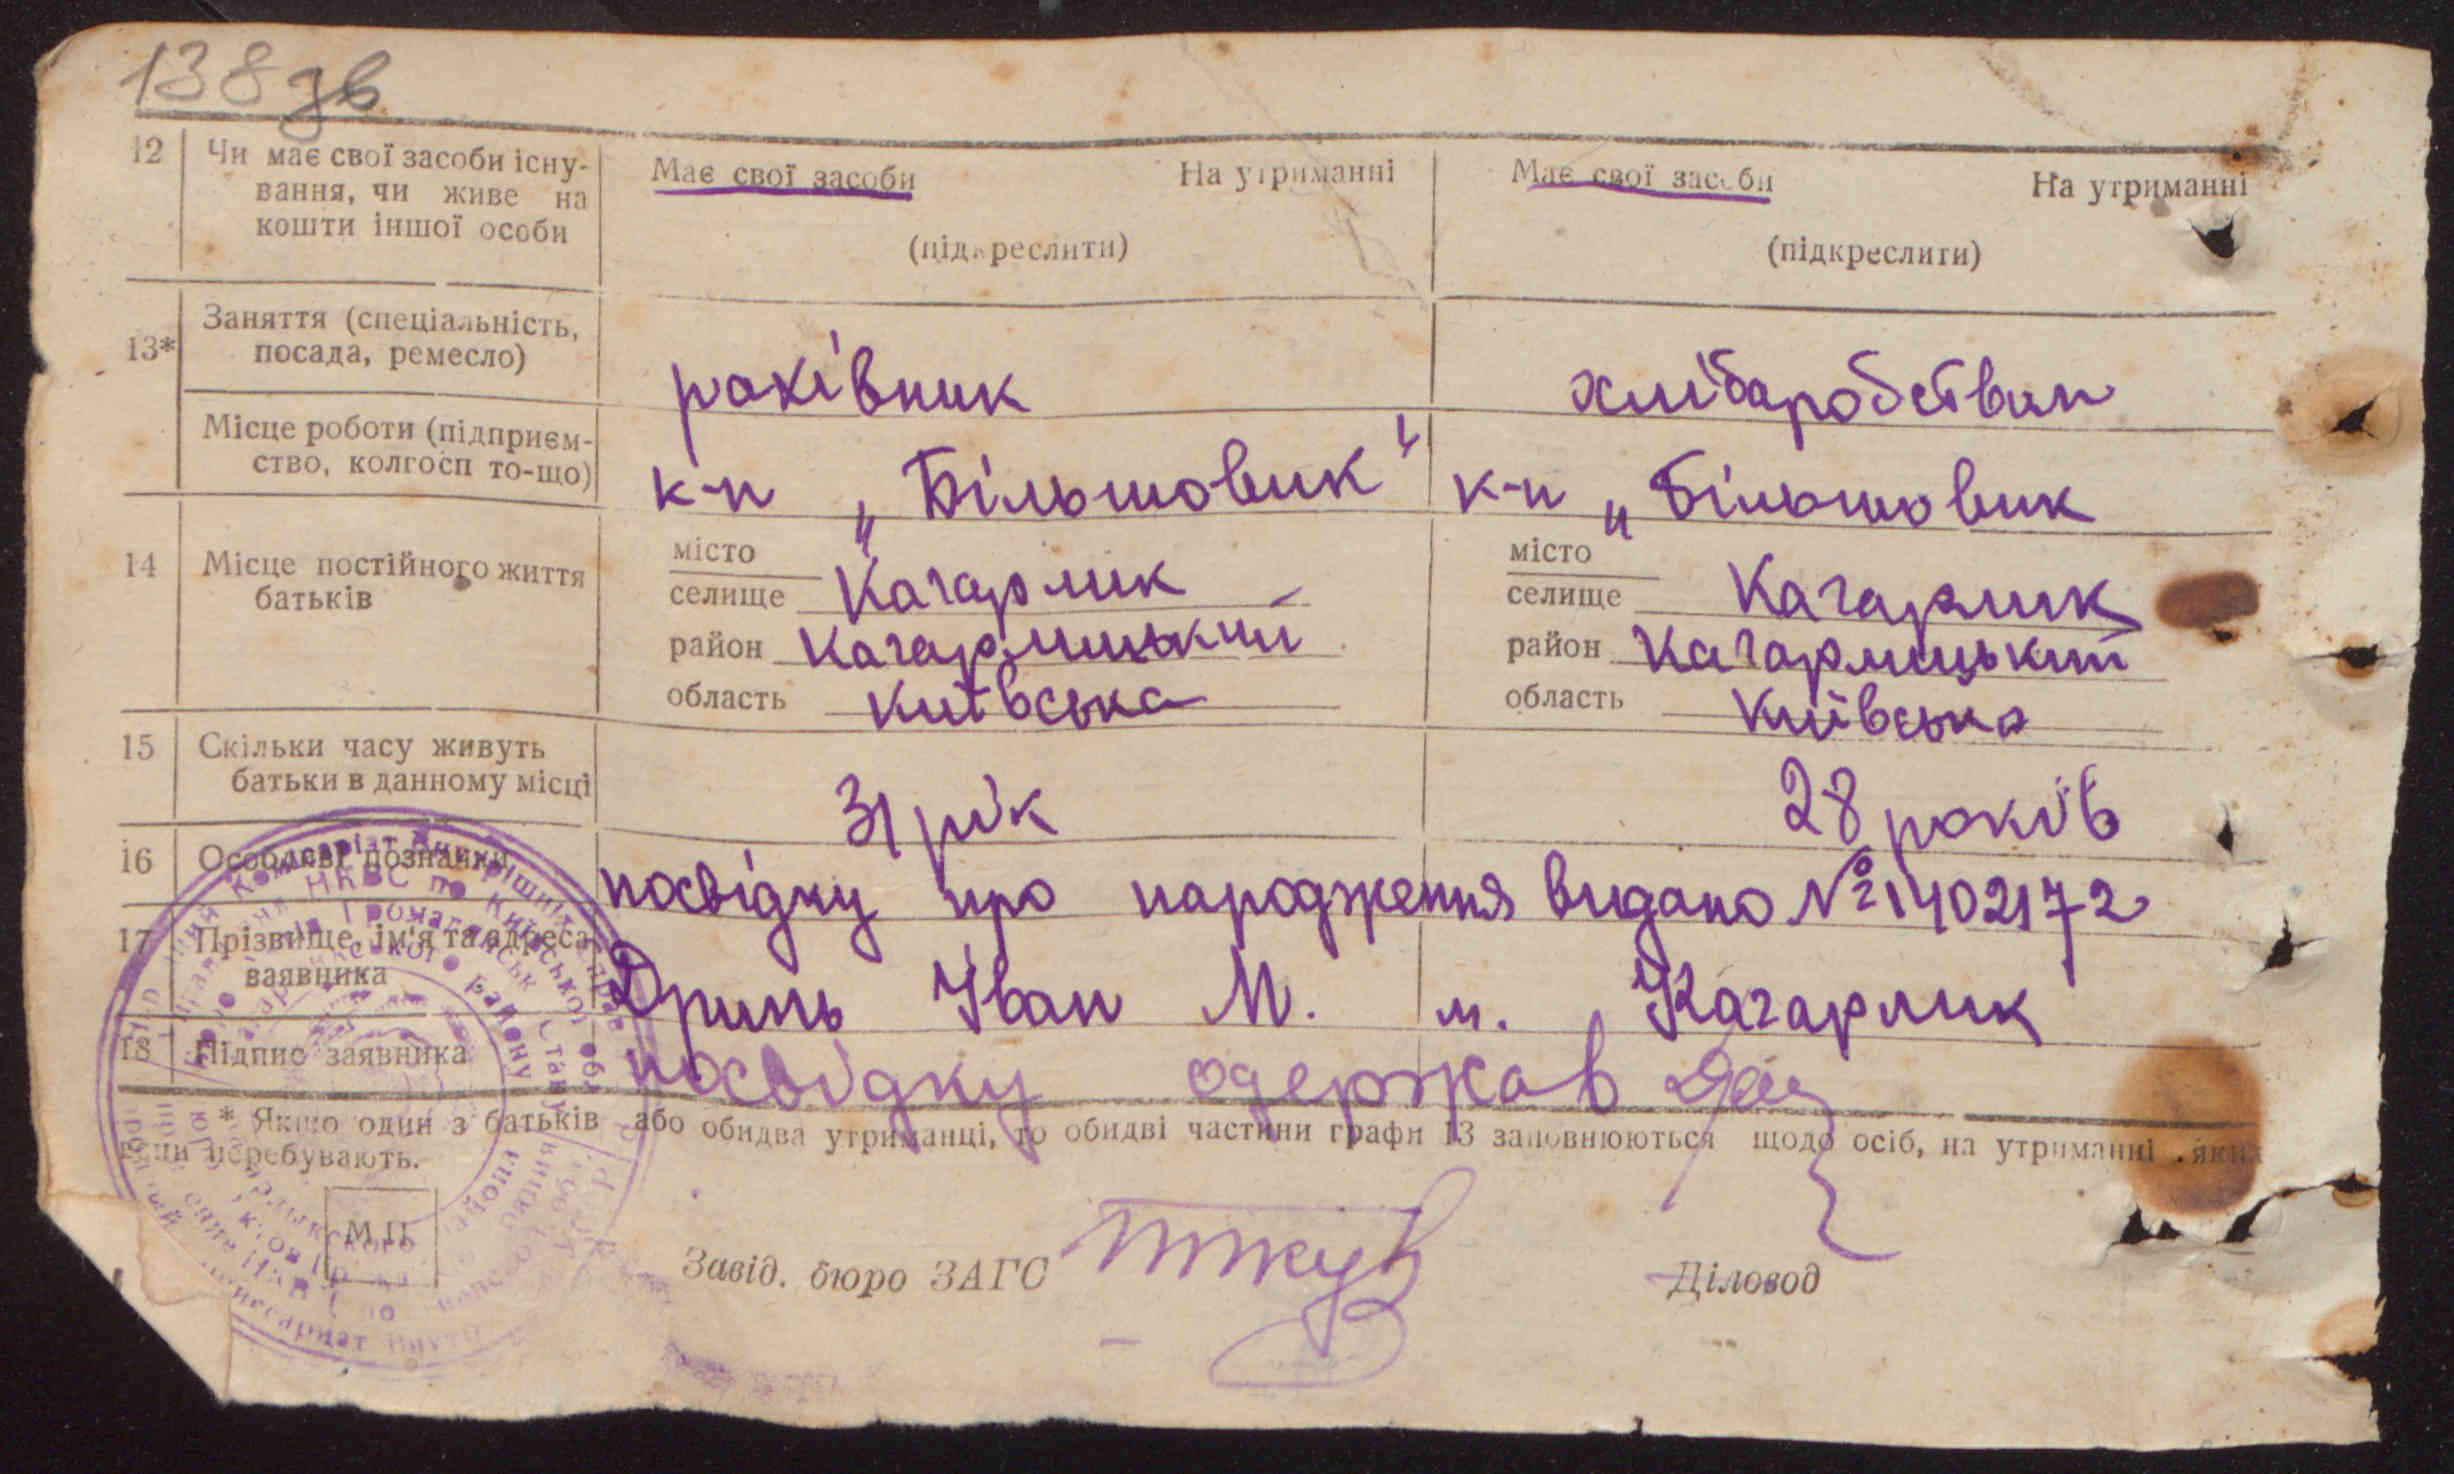 138 зв
12 Чи має свої засоби існу-
вання, чи живе на
кошти іншої особи
Має свої засоби На утриманні
(підкреслити)
Має свої засоби На утриманні
(підкреслити)
13* Заняття (спеціальність,
посада, ремесло)
рахівник
хліборобства
Місце роботи (підприєм-
ство, колгосп то-що)
к-п „Більшовик"
к-п „Більшовик
14 Місце постійного життя
батьків
місто
селище Кагарлик
район Кагарлицький
область Київська
місто
селище Кагарлик
район Кагарлицький
область Київська
15 Скільки часу живуть
батьки в данному місці
31 рік
28 років
16 Особливі познанки
посвідку про народження видано № 1402172
17 Прізвище, ім'я та адреса
заявника
Дринь Іван М. м. Кагарлик
18 Підпис заявника
посвідку одержав
* Якщо один з батьків або обидва утриманці, то обидві частини графи 13 заповнюються щодо осіб, на утриманні яких
вони перебувають.
М П
Завід. бюро ЗАГС
Діловод